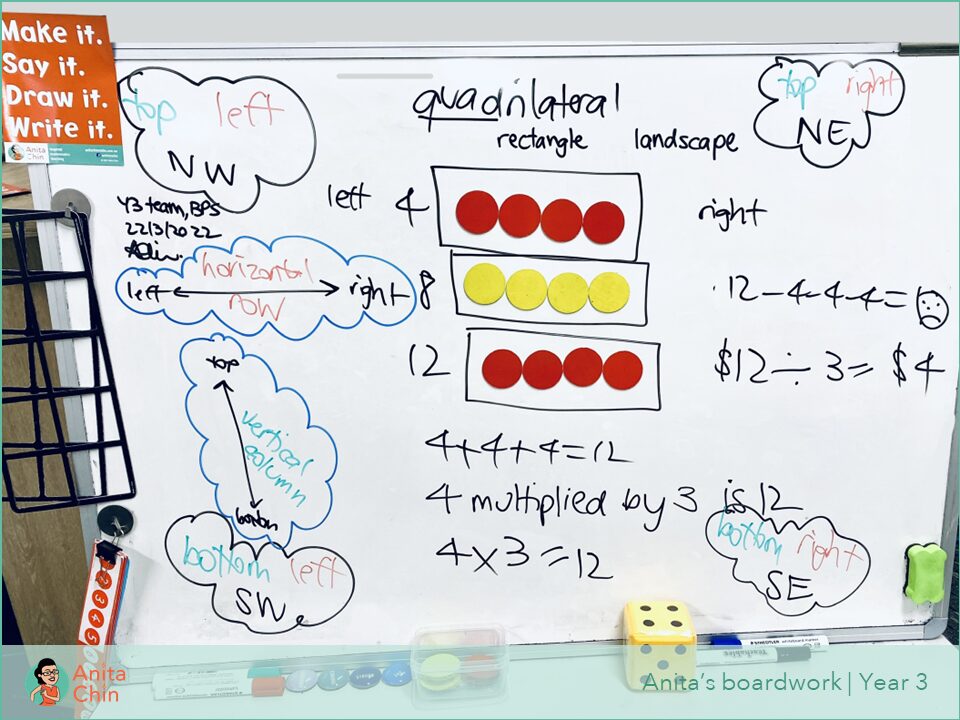 Make it.
Say it.
Draw it.
Write it.
Anita
Chin
top left
NW
quadrilateral
rectangle landscape
top right
NE
Y3 team, BPS
22/3/2022
horizontal
left right
row
left 4 right
8
12
12-4-4-4=0
$12÷3=$4
top
vertical
column
bottom
4+4+4=12
4 multiplied by 3 is 12
4x3=12
bottom left
SW
bottom right
SE
2
3
4
5
Anita
Chin
Anita's boardwork | Year 3